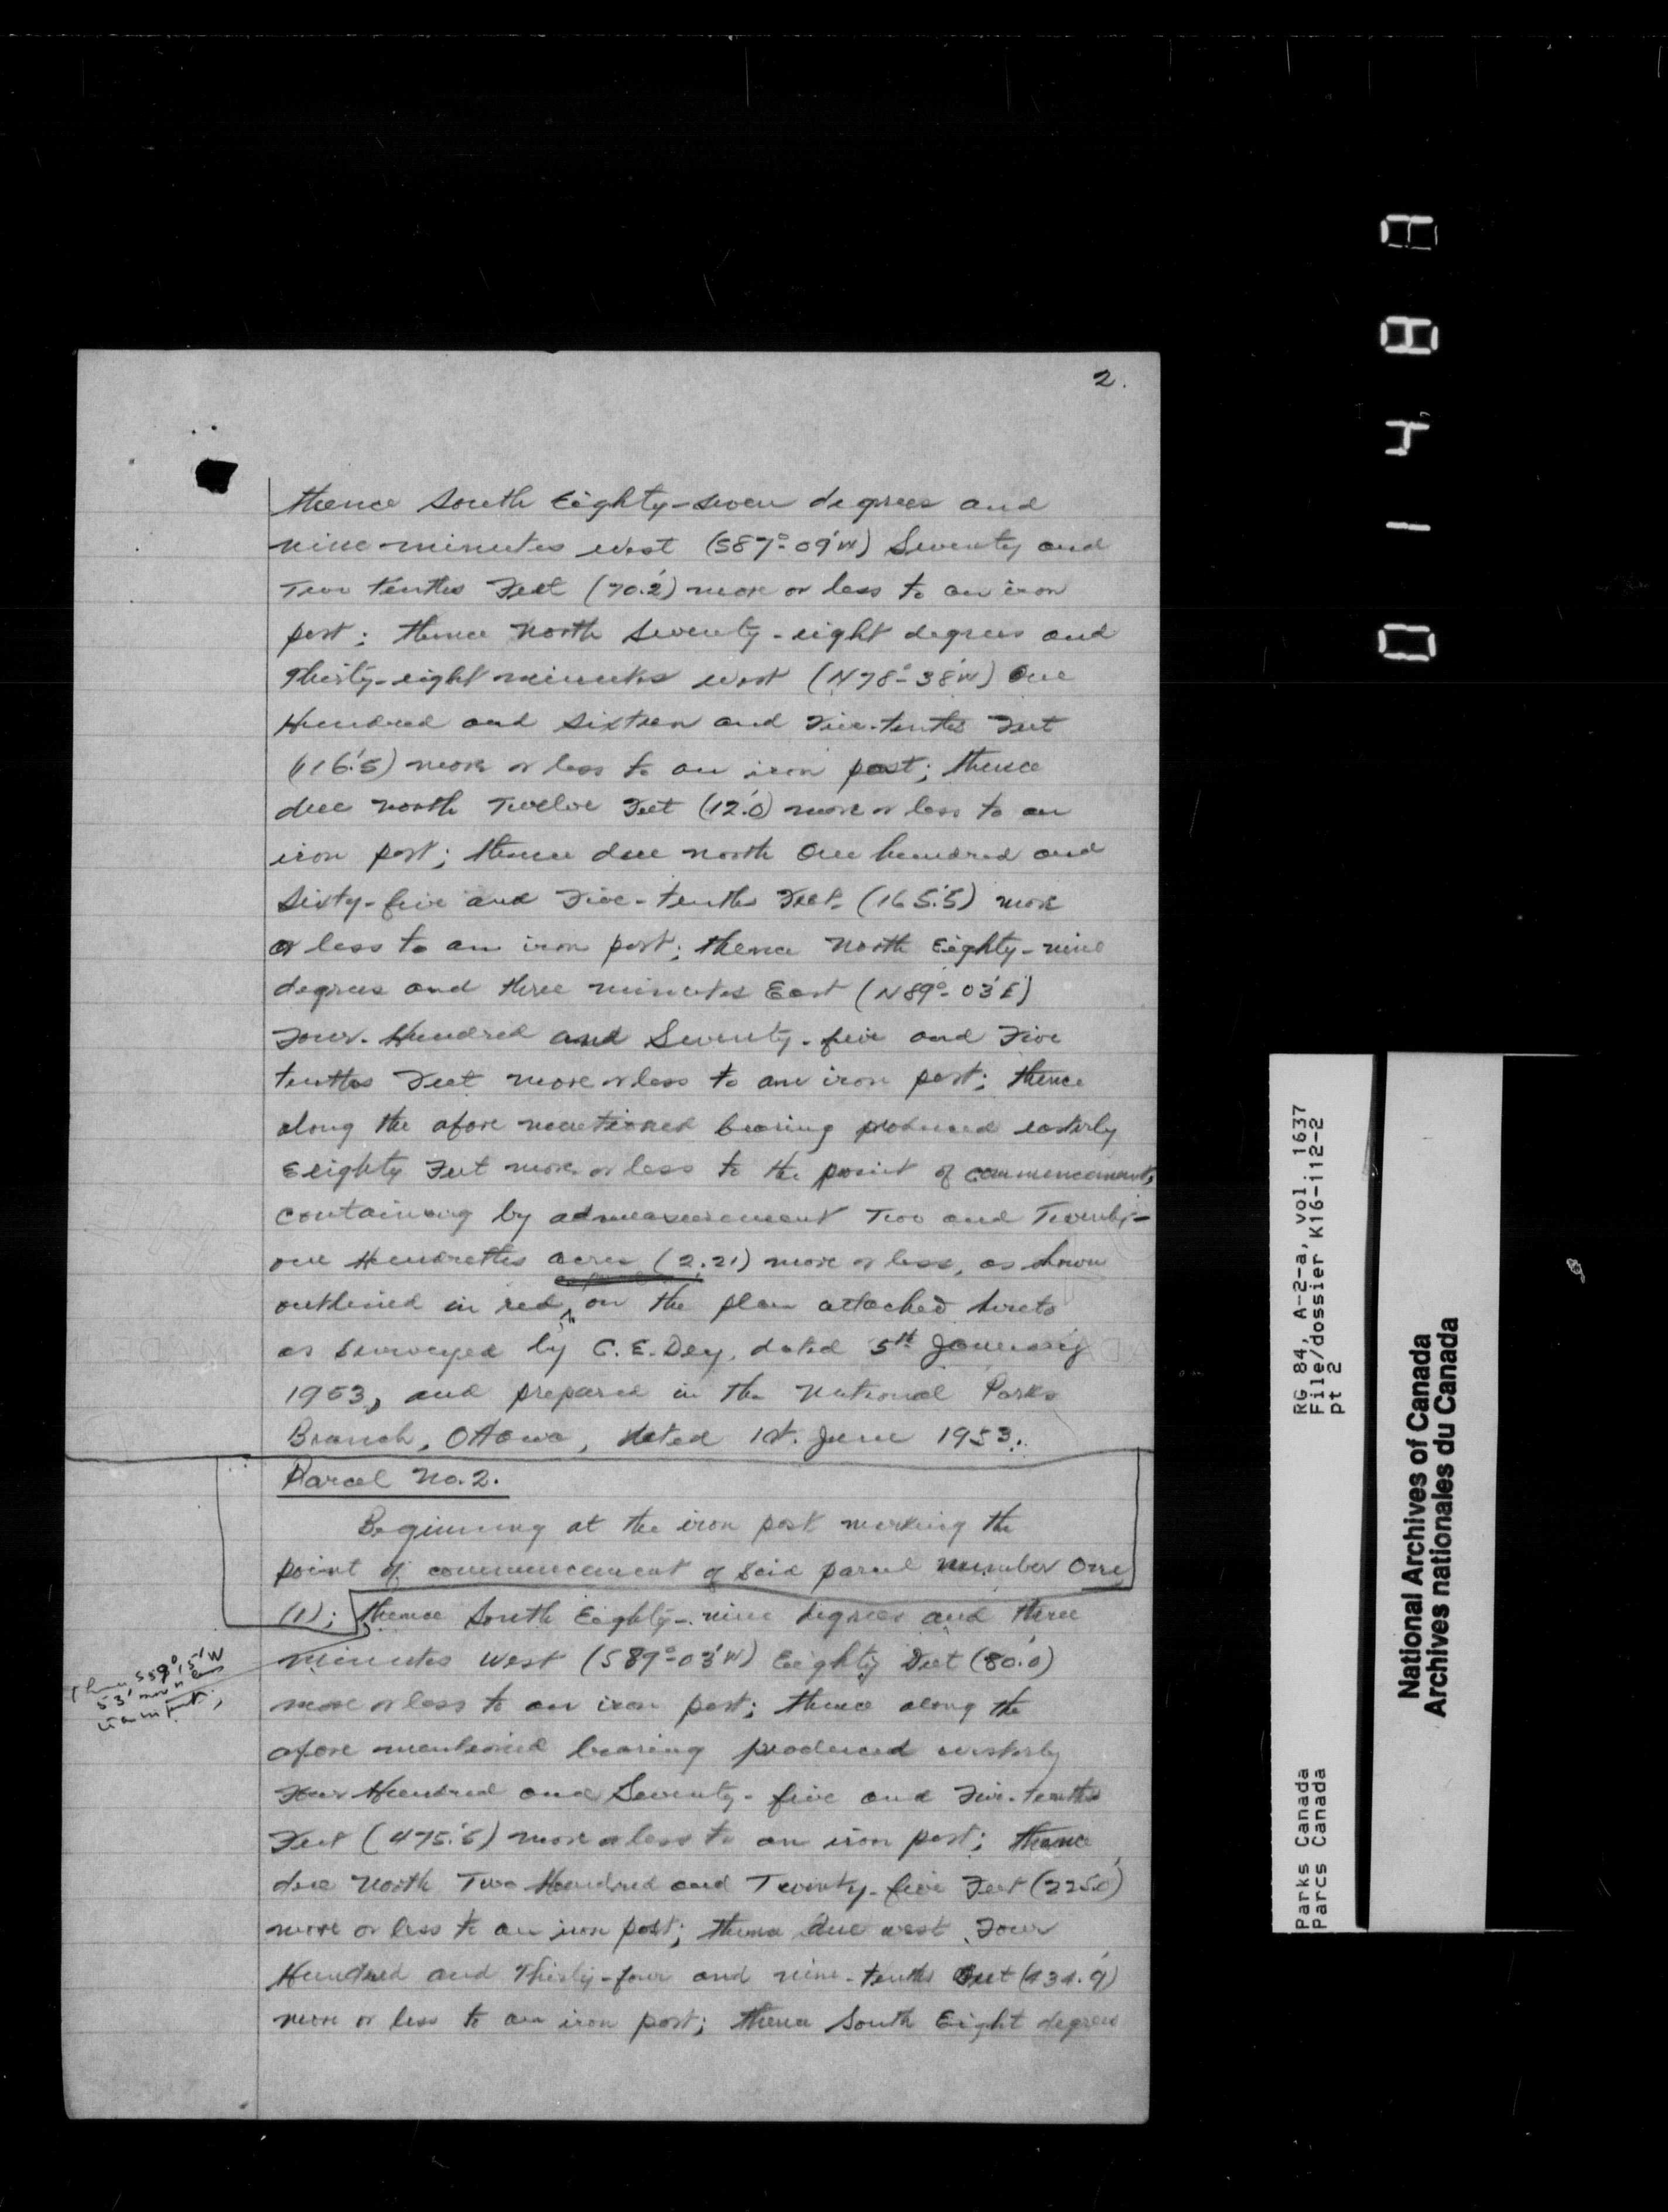 2.
thence South Eighty-seven degrees and
nine minutes west (S87°-09'W) Seventy and
Two tenths Feet (70.'2) more or less to an iron
post; thence North Seventy-eight degrees and
Thirty-eight minutes west (N78°-38'W) One
Hundred and Sixteen and Five-tenths Feet
(116.'5) more or less to an iron post; thence
due north Twelve Feet (12.'0) more or less to an
iron post; thence due north One hundred and
Sixty-five and Five-tenths Feet (165.'5) more
or less to an iron post; thence North Eighty-nine
degrees and three minutes East (N89°-03'E)
Four-Hundred and Seventy-five and Five
tenths Feet more or less to an iron post; thence
along the afore mentioned bearing produced easterly
Eeighty Feet more or less to the point of commencement,
containing by admeasurement Two and Twenty-
one Hundreths acres (2.21) more or less, as shown
outlined in red on the plan attached hereto
as surveyed by C.E. Dey, dated 5th January
1953, and prepared in the National Parks
Branch, Ottawa, dated 1st. June 1953.
Parcel No. 2.
Beginning at the iron post marking the
point of commencement of said parcel number One
(1); thence South Eighty-nine degrees and three
minutes West (S89°-03'W) Eeighty Feet (80.'0)
more or less to an iron post; thence along the
afore mentioned bearing produced westerly
Four Hundred and Seventy-five and Five-tenths
Feet (475.'5) more or less to an iron post; thence
due North Two Hundred and Twenty-five Feet (225.'0)
more or less to an iron post; thence due west Four
Hundred and Thirty-four and nine-tenths Feet (434.'9)
more or less to an iron post; thence South Eight degrees
RG 84, A-2-a, vol. 1637
File/dossier K16-112-2
pt 2
Parks Canada
Parcs Canada
National Archives of Canada
Archives nationales du Canada